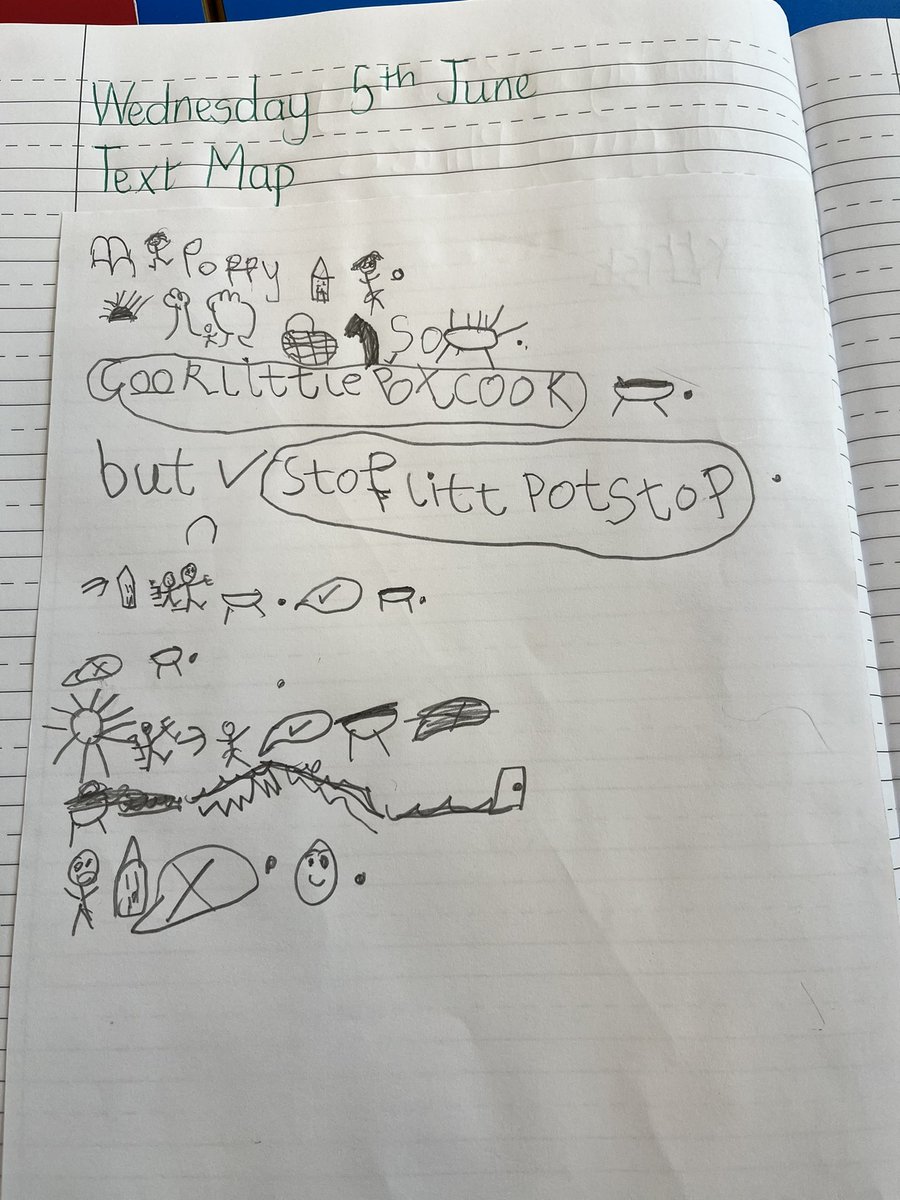 Wednesday 5th June
Text Map
Poppy
So
Cook little pot cook
but stop litt pot stop